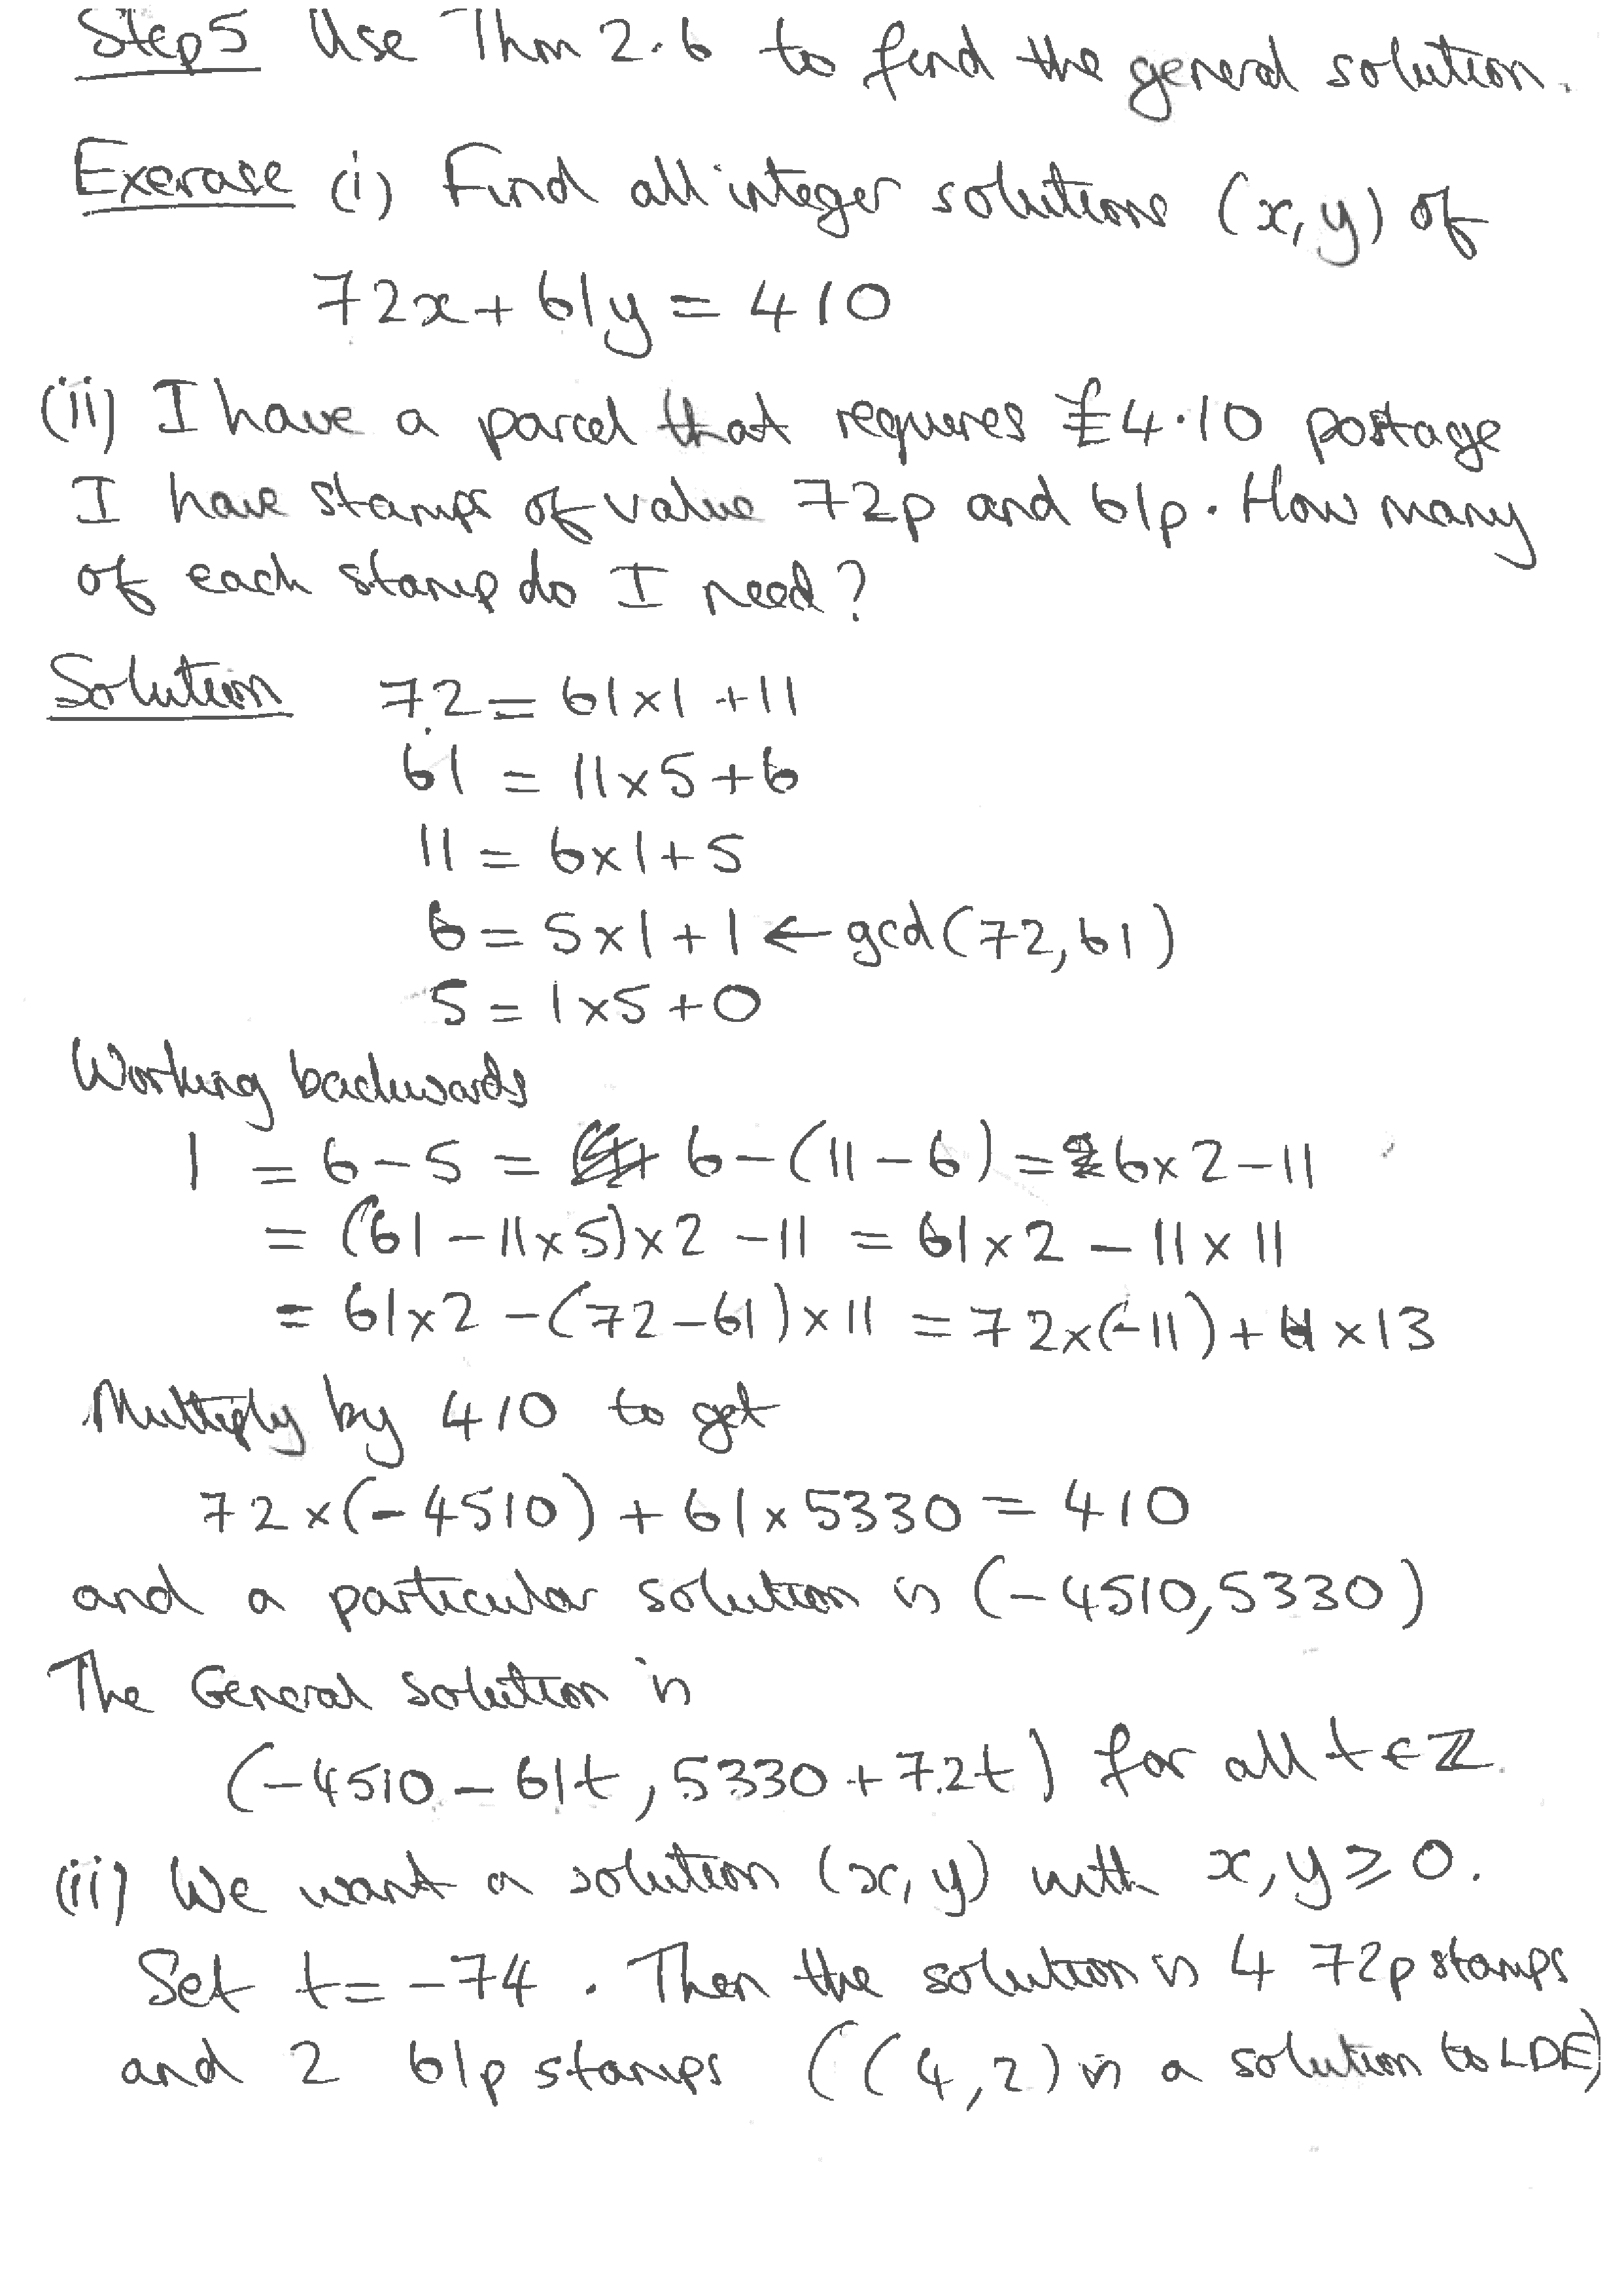 Step 5 Use Thm 2.6 to find the general solution.
Exercise (i) Find all integer solutions (x,y) of
72x + 61y = 410
(ii) I have a parcel that requires £4.10 postage
I have stamps of value 72p and 61p. How many
of each stamp do I need?
Solution 72 = 61×1 + 11
61 = 11×5 + 6
11 = 6×1 + 5
6 = 5×1 + 1 ← gcd(72,61)
5 = 1×5 + 0
Working backwards
1 = 6 - 5 = 6 - (11 - 6) = 6×2 - 11
= (61 - 11×5)×2 - 11 = 61×2 - 11×11
= 61×2 - (72 - 61)×11 = 72×(-11) + 61×13
Multiply by 410 to get
72×(-4510) + 61×5330 = 410
and a particular solution is (-4510, 5330)
The General solution is
(-4510 - 61t, 5330 + 72t) for all t ∈ ℤ.
(ii) We want a solution (x,y) with x, y ⩾ 0.
Set t = -74. Then the solution is 4 72p stamps
and 2 61p stamps ((4,2) is a solution to LDE)